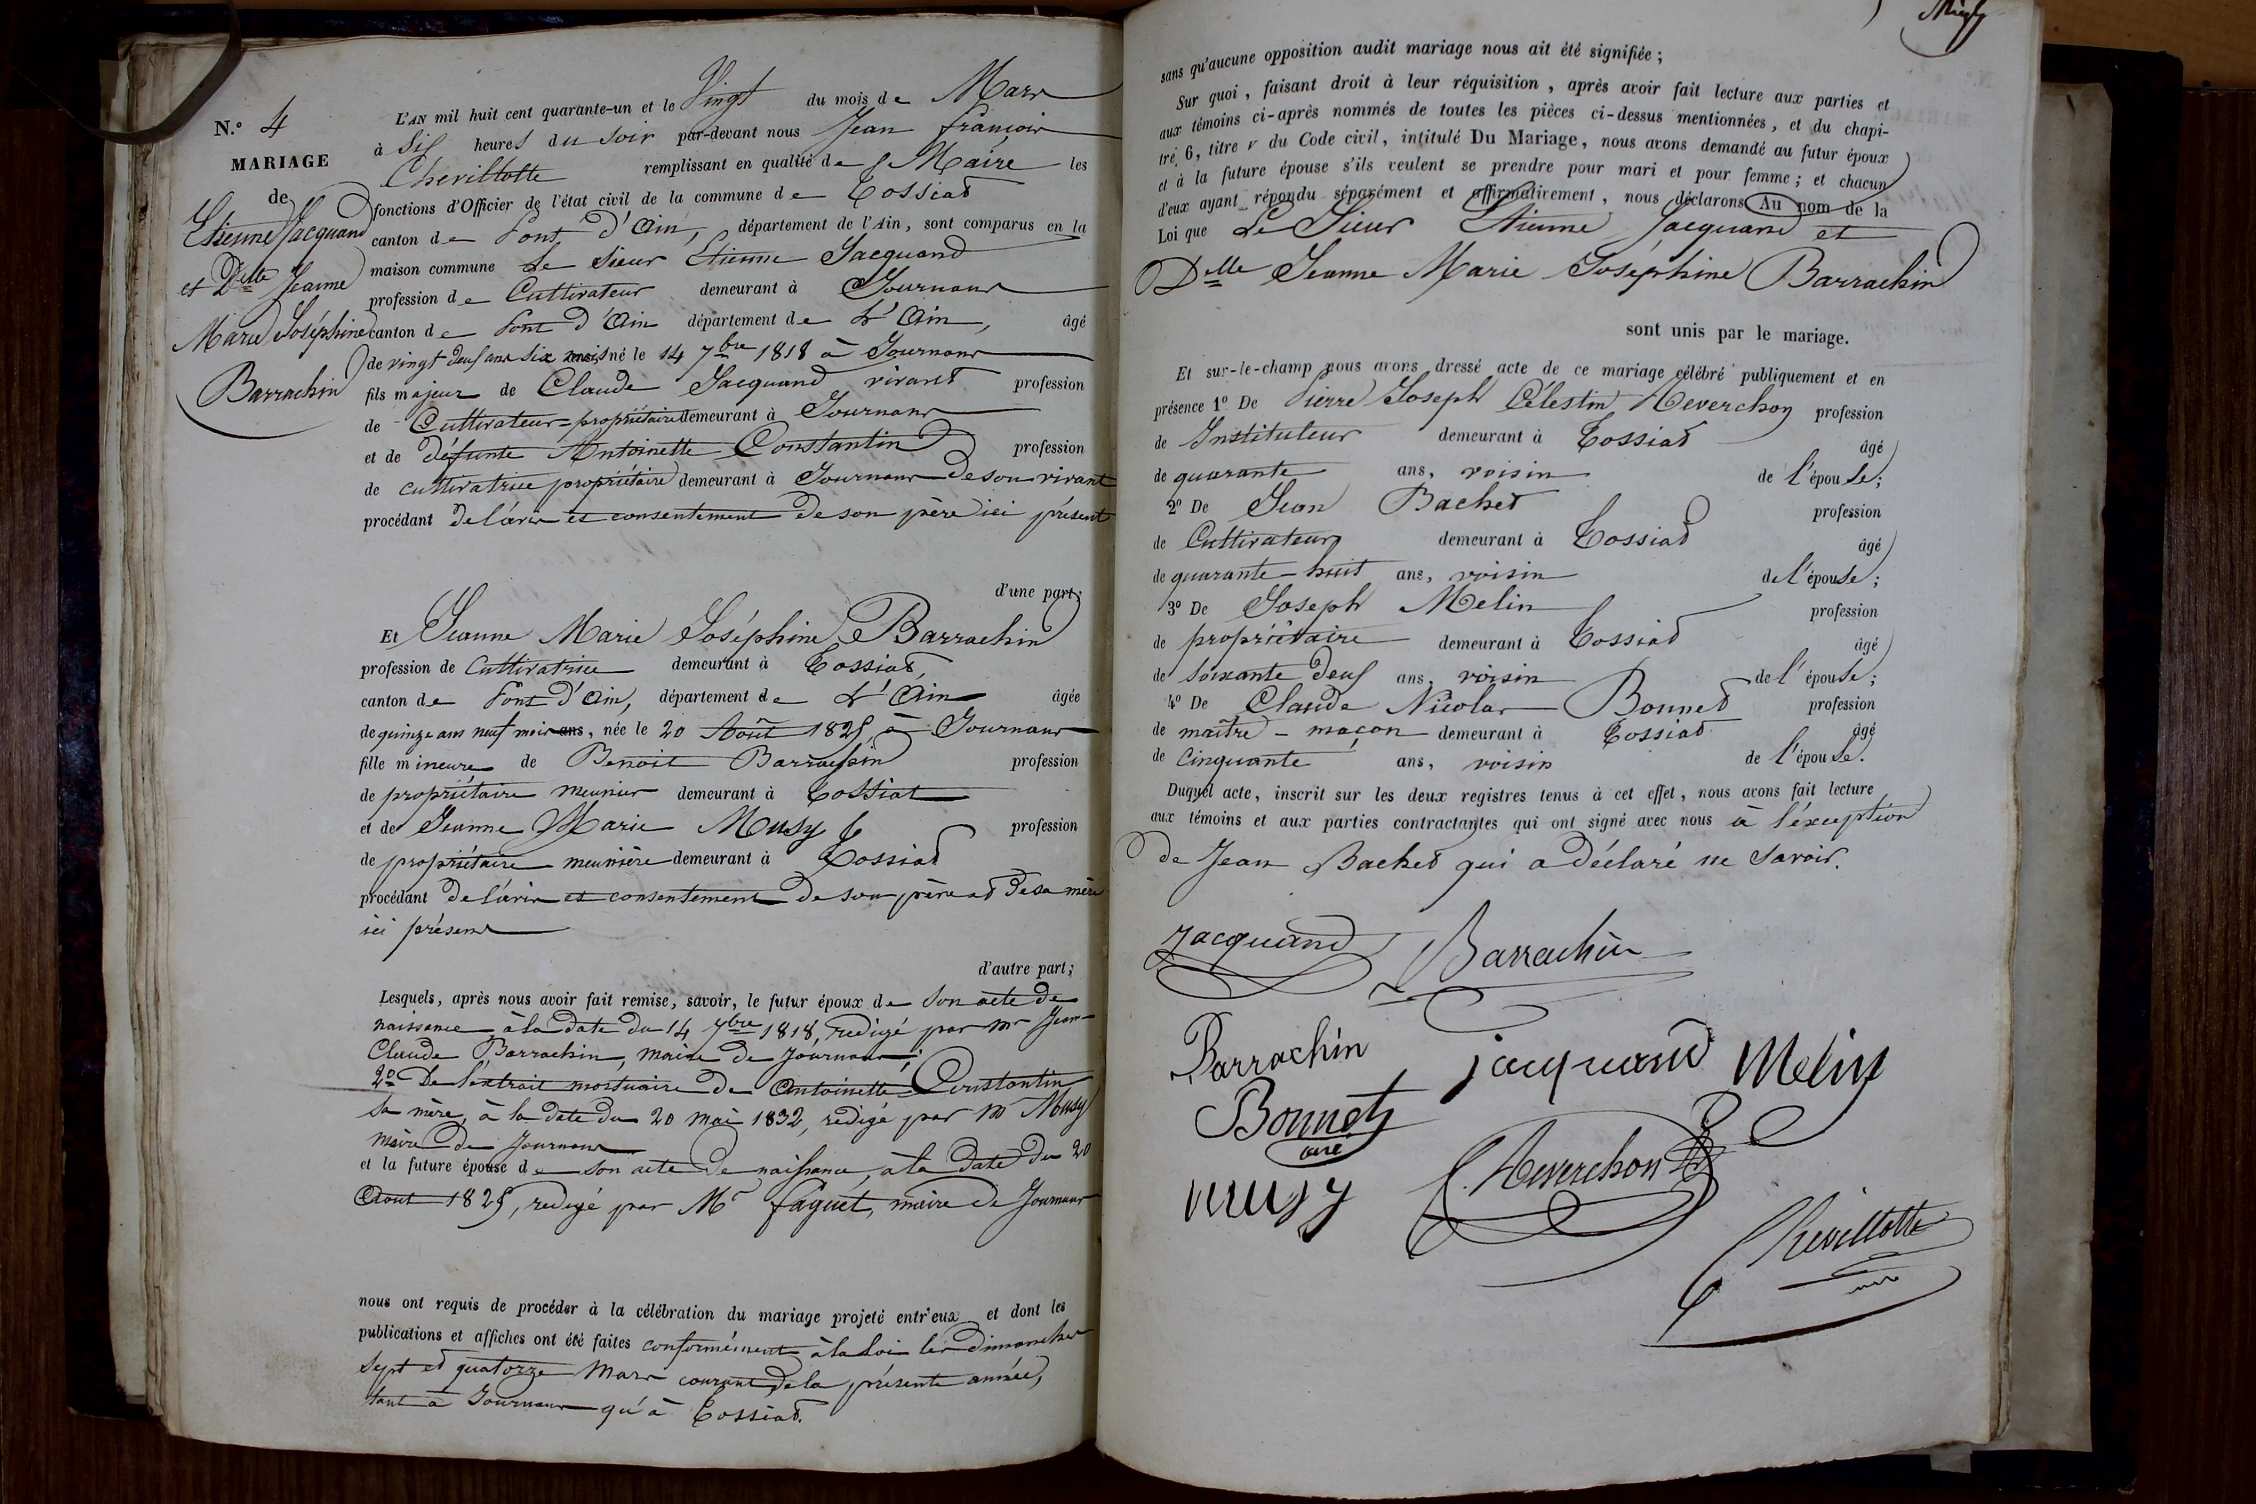 N.° 4
MARIAGE
de
Etienne Jacquand
et Delle Jeanne
Marie Joséphine
Barrachin
L'AN mil huit cent quarante-un et le Vingt du mois de Mars
à six heures du soir par-devant nous Jean françois
Chevillotte remplissant en qualité de Maire les
fonctions d'Officier de l'état civil de la commune de Tossiat
canton de Pont d'Ain, département de l'Ain, sont comparus en la
maison commune Le Sieur Etienne Jacquand
profession de Cultivateur demeurant à Journans
canton de Pont d'Ain département de L'Ain, âgé
de vingt deux ans six mois né le 14 7bre 1818 à Journans
fils majeur de Claude Jacquand vivant profession
de Cultivateur-propriétaire demeurant à Journans
et de défunte Antoinette Constantin profession
de cultivatrice propriétaire demeurant à Journans de son vivant
procédant de l'avis et consentement de son père ici présent
d'une part;
Et Jeanne Marie Joséphine Barrachin
profession de Cultivatrice demeurant à Tossiat,
canton de Pont d'Ain, département de L'Ain âgée
de quinze ans neuf mois ans, née le 20 Août 1825, à Journans
fille mineure de Benoit Barrachin profession
de propriétaire meunier demeurant à Tossiat
et de Jeanne Marie Musy profession
de propriétaire meunière demeurant à Tossiat
procédant de l'avis et consentement de son père et de sa mère
ici présens
d'autre part;
Lesquels, après nous avoir fait remise, savoir, le futur époux de son acte de
naissance à la date du 14 7bre 1818, redigé par Mr Jean-
Claude Barrachin, maire de Journans;
2° De l'extrait mortuaire de Antoinette Constantin
sa mère, à la date du 20 mai 1832, redigé par Mr Musy
maire de Journans
et la future épouse de son acte de naissance, à la date du 20
Aout 1825, redigé par Mr faguet, maire de Journans
nous ont requis de procéder à la célébration du mariage projeté entr'eux et dont les
publications et affiches ont été faites conformément à la loi les dimanches
sept et quatorze Mars courant de la présente année,
tant à Journans qu'à Tossiat.
sans qu'aucune opposition audit mariage nous ait été signifiée;
Sur quoi, faisant droit à leur réquisition, après avoir fait lecture aux parties et
aux témoins ci-après nommés de toutes les pièces ci-dessus mentionnées, et du chapi-
tre 6, titre v du Code civil, intitulé Du Mariage, nous avons demandé au futur époux
et à la future épouse s'ils veulent se prendre pour mari et pour femme; et chacun
d'eux ayant répondu séparément et affirmativement, nous déclarons Au nom de la
Loi que Le Sieur Etienne Jacquand et
Delle Jeanne Marie Joséphine Barrachin
sont unis par le mariage.
Et sur-le-champ nous avons dressé acte de ce mariage célébré publiquement et en
présence 1° De Pierre Joseph Célestin Reverchon profession
de Instituteur demeurant à Tossiat âgé
de quarante ans, voisin de l'épouse;
2° De Jean Bachet profession
de Cultivateur demeurant à Tossiat âgé
de quarante-huit ans, voisin de l'épouse;
3° De Joseph Melin profession
de propriétaire demeurant à Tossiat âgé
de soixante deux ans, voisin de l'épouse;
4° De Claude Nicolas Bonnet profession
de maître-maçon demeurant à Tossiat âgé
de Cinquante ans, voisin de l'épouse.
Duquel acte, inscrit sur les deux registres tenus à cet effet, nous avons fait lecture
aux témoins et aux parties contractantes qui ont signé avec nous à l'exception
de Jean Bachet qui a déclaré ne savoir.
Jacquand Barrachin
Barrachin jacquand Melin
Bonnet
musy Reverchon
Chevillotte